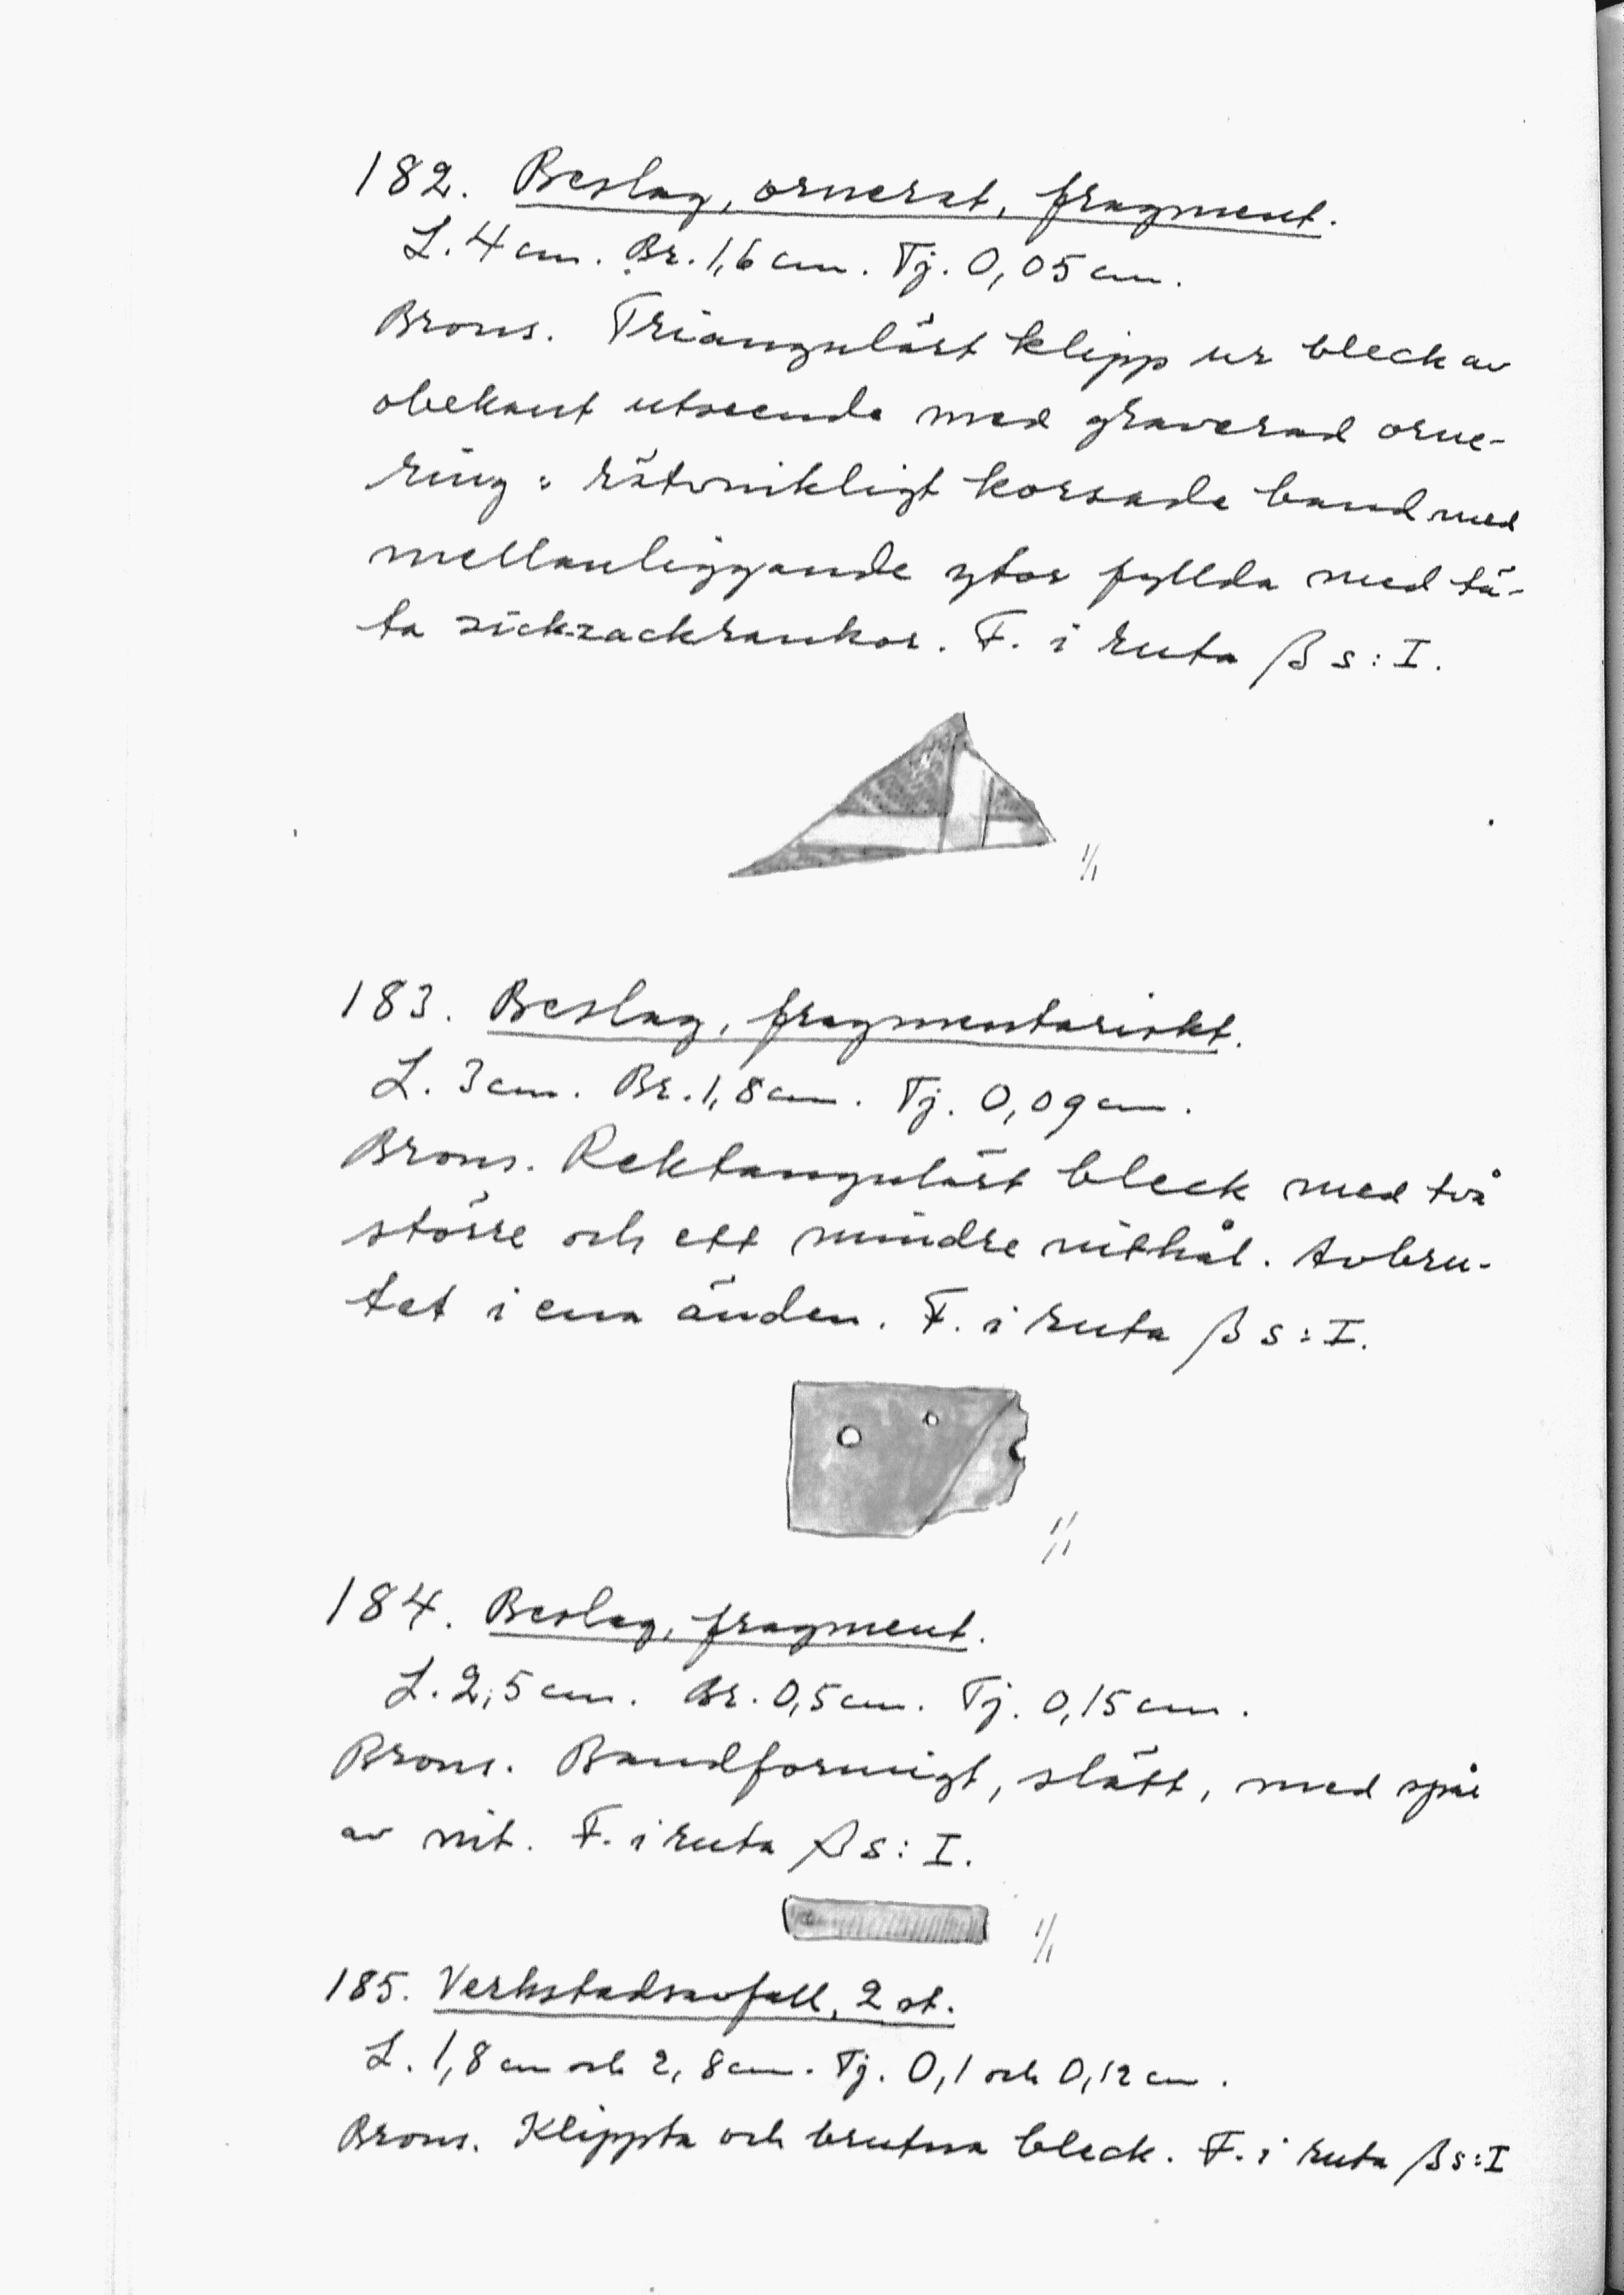 182. Beslag, ornerat, fragment.
L. 4 cm. Br. 1,6 cm. Tj. 0,05 cm.
Brons. Triangulärt klipp ur bleck av
obekant utseende med graverad orne-
ring: rätvinkligt korsade band med
mellanliggande ytor fyllda med tä-
ta sicksackrankor. F. i ruta β s: I.
1/1
183. Beslag, fragmentariskt.
L. 3 cm. Br. 1,8 cm. Tj. 0,09 cm.
Brons. Rektangulärt bleck med två
större och ett mindre nithål. Avbru-
tet i ena änden. F. i ruta β s: I.
1/1
184. Beslag, fragment.
L. 2,5 cm. Br. 0,5 cm. Tj. 0,15 cm.
Brons. Bandformigt, slätt, med spår
av nit. F. i ruta β s: I.
1/1
185. Verkstadsavfall, 2 st.
L. 1,8 cm och 2,8 cm. Tj. 0,1 och 0,12 cm.
Brons. Klippta och brutna bleck. F. i ruta β s: I